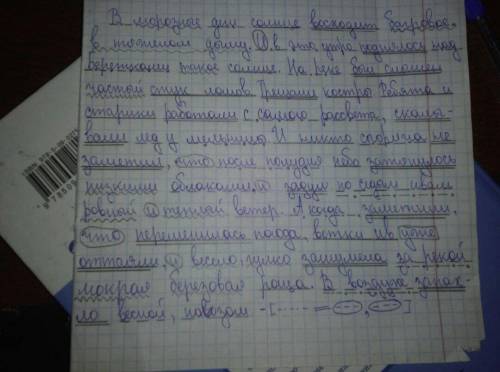 В морозные дни солнце восходит багровое,
в тяжелом дыму. И в это утро поднялось над
Бережками такое солнце. На реке был слышен
частый стук ломов. Трещали костры. Ребята и
старики работали с самого рассвета, скалы-
вали лед у мельницы. И никто сгоряча не
заметил, что после полудня небо затянулось
низкими облаками и задул по седым ивам
ровный и теплый ветер. А когда заметили,
что переменилась погода, ветки ив уже
оттаяли, и весело, гулко зашумела за рекой
мокрая березовая роща. В воздухе запах-
ло весной, навозом - [